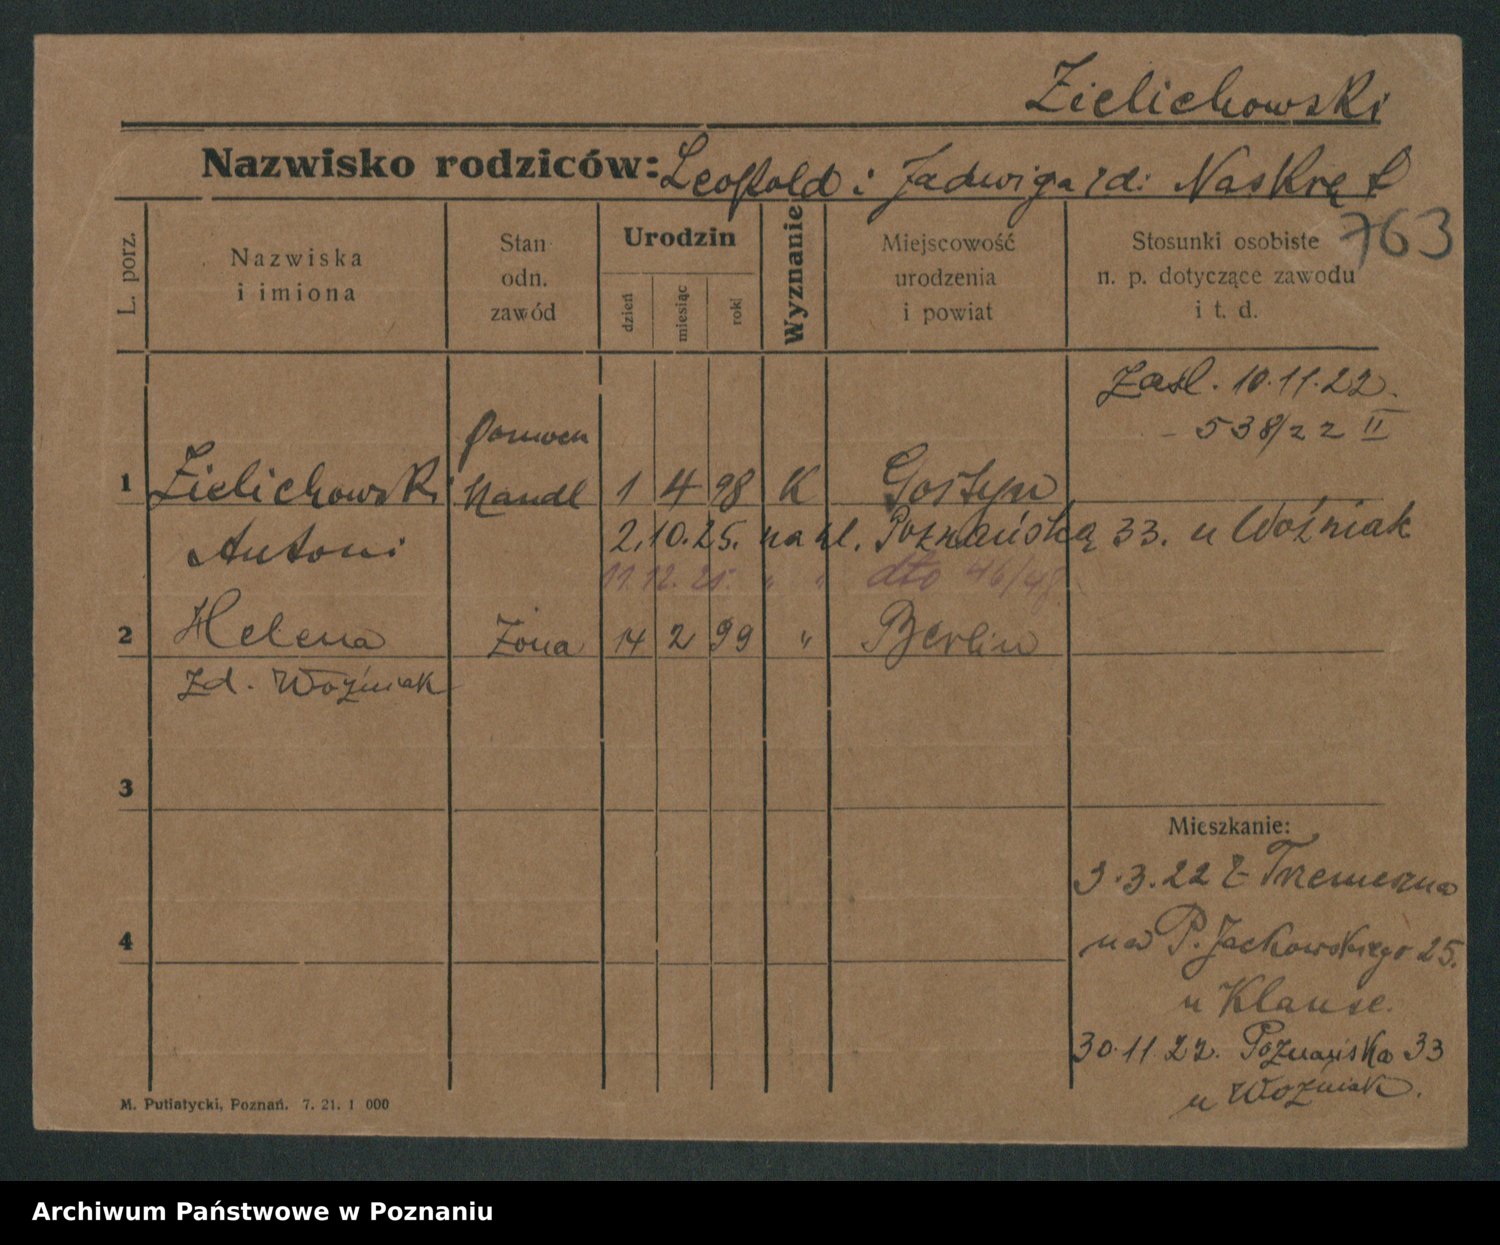 Zielichowski
Nazwisko rodziców: Leopold i Jadwiga zd: Naskręt
763
L. porz.
Nazwiska
i imiona
Stan
odn.
zawód
Urodzin
dzień
miesiąc
rok
Wyznanie
Miejscowość
urodzenia
i powiat
Stosunki osobiste
n. p. dotyczące zawodu
i t. d.
Zasl. 10.11.22.
- 538/22 II
pomocn
1 Zielichowski handl 1 4 98 K Gostyn
Antoni 2.10.25. na ul. Poznańską 33. u Woźniak
11.12.25. " " dto 46/48.
2 Helena żona 14 2 99 " Berlin
zd. Woźniak
3
Mieszkanie:
3.3.22 z Trzemeszna
4
na P. Jackowskiego 25.
u Klause.
30.11.22. Poznańska 33
u Woźniak.
M. Putiatycki, Poznań. 7. 21. 1 000
Archiwum Państwowe w Poznaniu